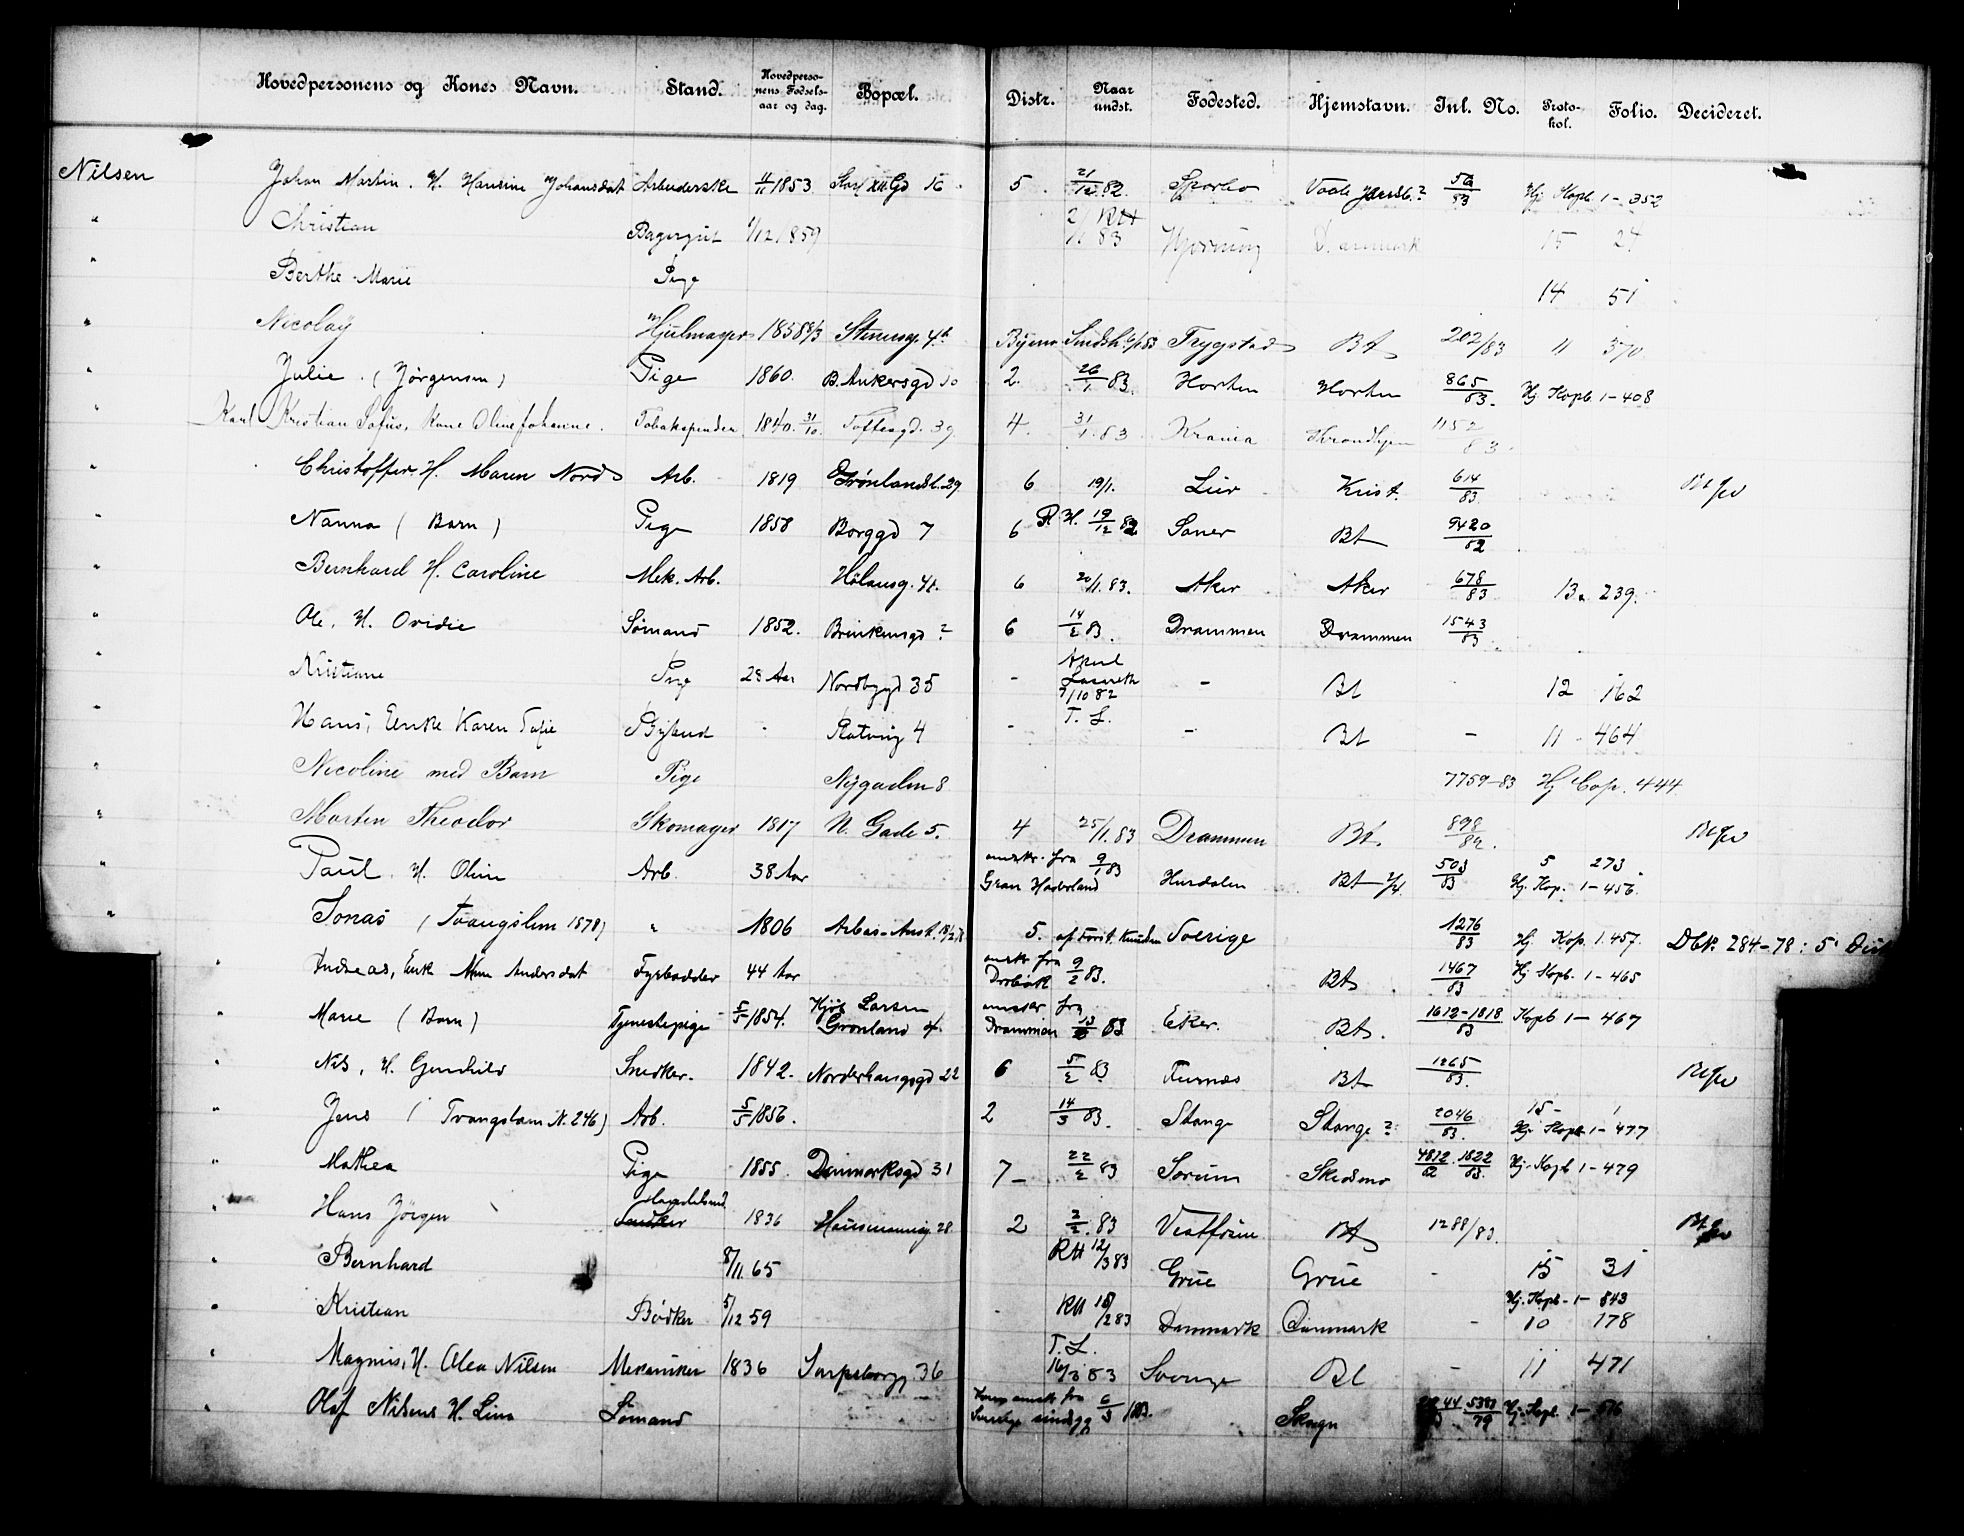 Hovedpersonens og Kones Navn. Stand. Hovedperso-nens Fødsels-aar og dag. Bopæl. Distr. Naar undst. Fødested. Hjemstavn. Inl. No. Proto-kol. Folio. Decideret.
Nilsen Johan Martin. H. Hansine Johansdat Arbeiderske 11/11 1853 16 5 21/12 82 56/83 Hj. Kopb. 1-352
" Christian Bagergut 1/12 1859 2/11 83 RH Hjørring Danmark 15 24
" Berthe Marie Pige 14 51
" Nicolay Hjulmager 1858 8/3 Stensg. 4b Trygstad Bt 202/83 11 370
" Julie. (Jørgensen) Pige 1860. B. Ankersgd 10 2. 26/1 83. Horten Horten 865/83. Hj Kopb. 1-408
" Karl Kristian Sofus, Kone Oline Johanne. Tobakspinder 1840. 31/10. Toftesgd. 39 4. 31/1. 83. Krania Throndhjem 1152/83.
" Christoffer H. Maren Nords Arb. 1819 Grønlandsl. 29. 6 19/1. Lier Krist. 614/83
" Nanna (Barn) Pige 1858 Borggd 7 6 R. H. 19/12 82 Saner Bt 9420/82
" Bernhard H. Caroline Mek. Arb. Hølandsg. 4 6 20/1. 83. Aker Aker 678/83 13. 239.
" Ole, H. Ovidie Sømand 1852. Brinkensgd ? 6 14/2 83. Drammen Drammen 1543/83
" Kristiane Pige 28 Aar Nordbygd 35 - Akad Lazareth 9/10 82 - Bt 12 162
" Hans, Enke Karen Sofie Bybud - Platvig 4 - T. L. - Bt - 11 464
" Nicoline med Barn Pige Nygaden 8 7759-83 Hj Cop. 444
" Morten Theodor Skomager 1817 N. Gade 5. 4 25/1. 83 Drammen Bt. 898/82.
" Paul. H. Oline Arb. 38 Aar undst. fra Gran Haderland 9/1 83 Hurdalen Bt 503/83 5 273
Hj. Kop. 1-456.
" Jonas (Tvangslem 1878) " 1806 Arbeis-Anst. 5. af Forst. Sverige 1276/83 Hj. Kop. 1. 457. Dbk. 284-78: 5 Dist
" Andreas, Enk Andersdat Fyrbødder 44 Aar undst fra Drøbak 9/2 83. Bt 1467/83 Hj Kopb. 1-465
" Marie (Barn) Tjenestepige 5/5 1854. Hjos Larsen Grønland 4 undst fra Drammen 83 Eker. Bt. 1612-1818/83 Kopb 1-467
" Nils, H. Gunhild Snedker. 1842. Norderhaugsgd 22 6 5/2 83 Furnæs Bt 1265/83.
" Jens (Tvangslem N. 246) Arb. 5/5 1856. 2 14/3 83. Stange Stange? 2046/83. 15- 1
Hj. Kopb 1-477
" Mathea Pige 1855. Danmarksgd 31 7- 22/2 83 Sørum Skedsmo 4812/82. 1822/83. Hj. Kopb 1-479
" Hans Jörgen Snedker 1836 Hausmannsg. 28. 2 2/2. 83 Vestfossen Bt 1288/83.
" Bernhard 8/11 65 RH 12/3 83 Grue Grue - 15 31
" Kristian Bødker 5/12 59 - RH 15/2 83 Danmark Danmark - Hj. Kopb - 1- 843
10 178
" Magnus, H. Olea Nilsen Mekaniker 1836 Sarpsborgg 36 T. L. 16/3 83 Bt - 11 471
" Olaf Nilsens H. Lina Sømand undst fra 6/3 83. 5387/79 Hj. Kopb. 1-